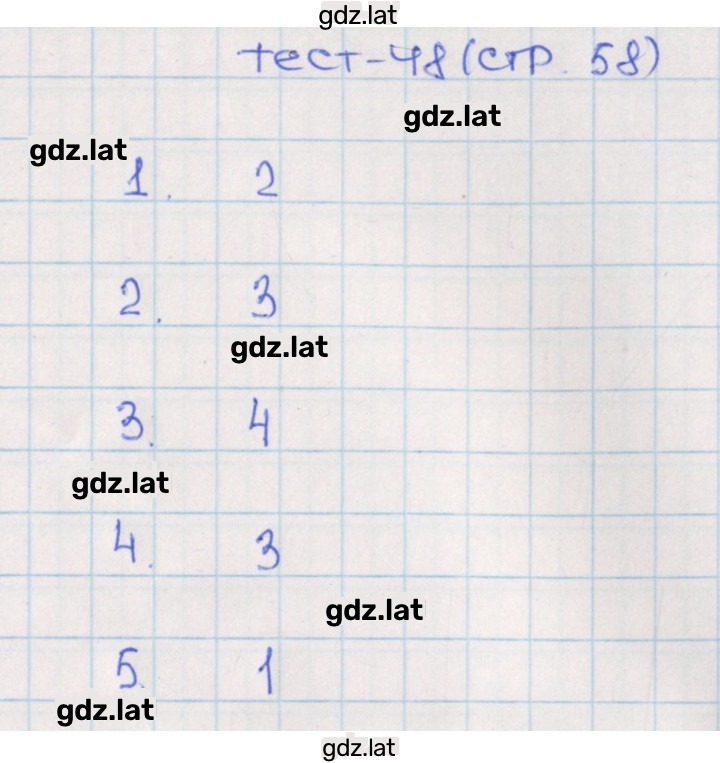 gdz.lat
тест-48 (стр. 58)
gdz.lat
gdz.lat
1. 2
2. 3
gdz.lat
3. 4
gdz.lat
4. 3
gdz.lat
5. 1
gdz.lat
gdz.lat